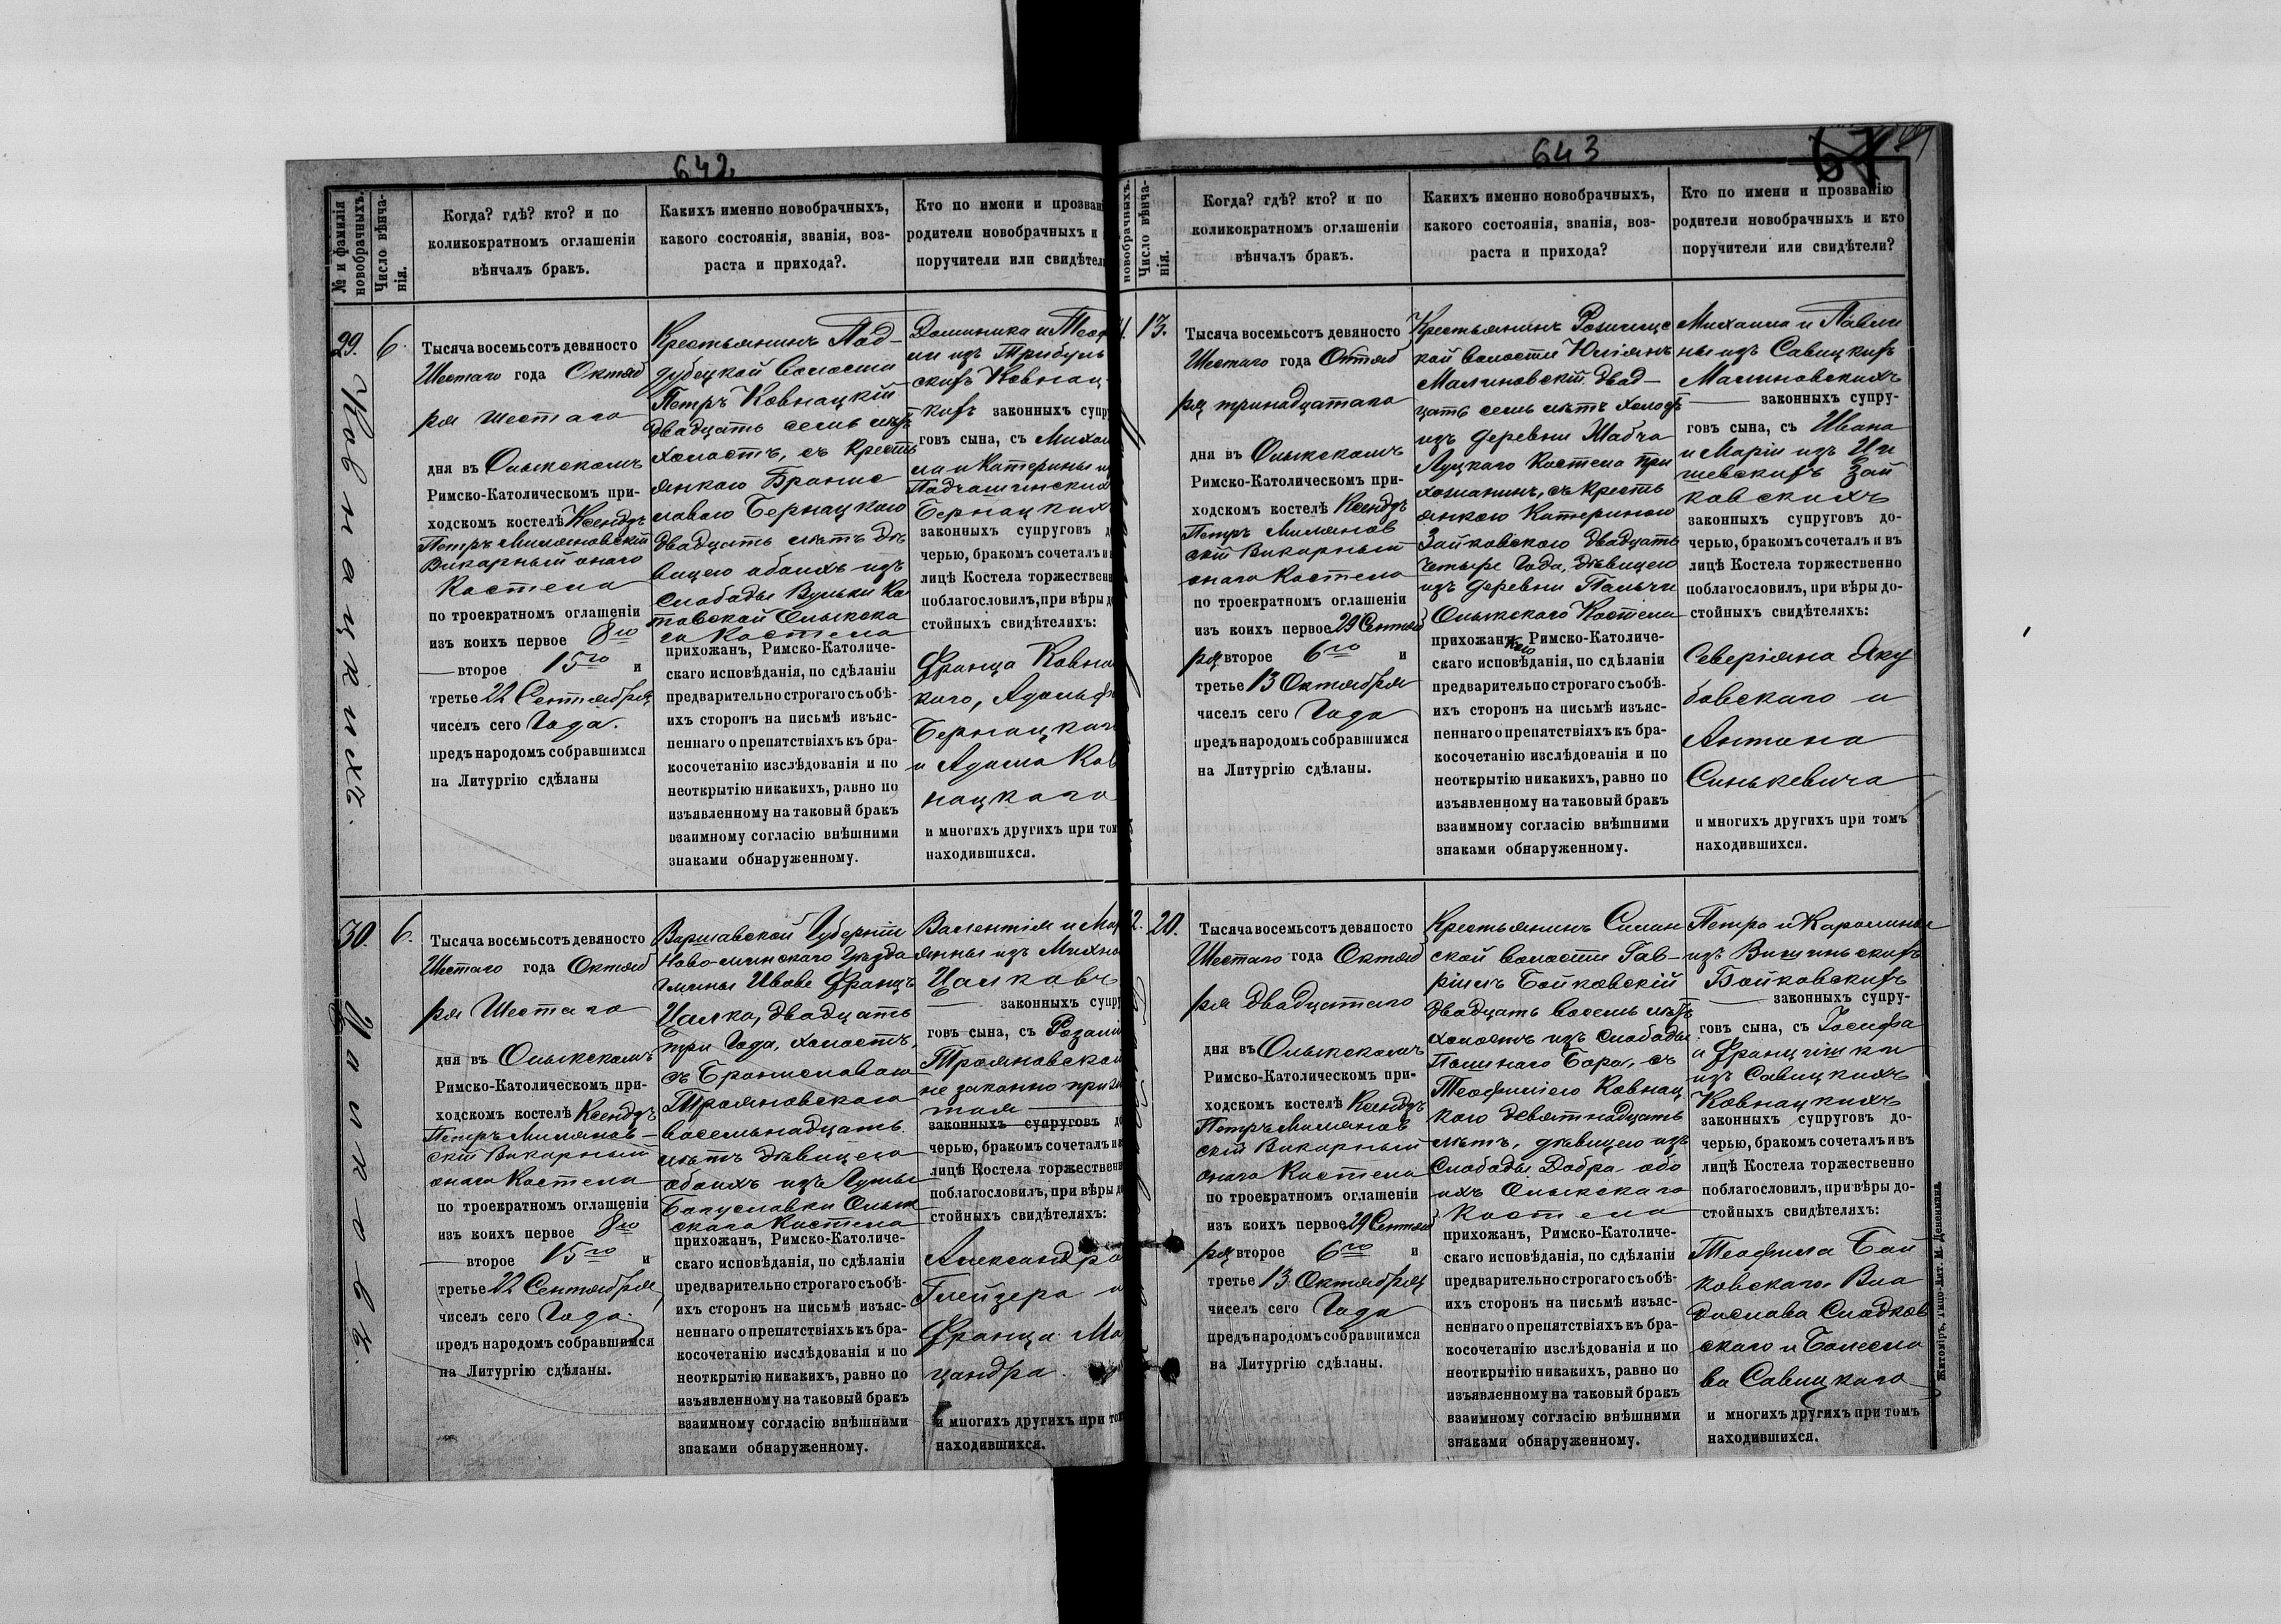 642
№ и фамилія
новобрачныхъ.
Число вѣнча-
нія.
Когда? гдѣ? кто? и по
коликократномъ оглашеніи
вѣнчалъ бракъ.
Каких именно новобрачныхъ,
какого состоянія, званія, воз-
раста и прихода?.
Кто по имени и прозван
родители новобрачныхъ и
поручители или свидѣтел
29.
Ковнацкихъ.
6.
Тысяча восемьсотъ девяносто
Шестаго года Октяб
ря шестаго
дня въ Олыкскомъ
Римско-Католическомъ при-
ходскомъ костелѣ Ксендзъ
Петръ Миляновскій
Викарный онаго
Костела
по троекратномъ оглашеніи
изъ коихъ первое 8го
второе 15го и
третье 22 Сентября
чиселъ сего Года.
предъ народомъ собравшимся
на Литургію сдѣланы
Крестьянинъ Под-
дубецкой волости
Петръ Ковнацкій
двадцать семь лѣтъ
холостъ, съ Кресть
янкою Бронис
лавою Бернацкою
двадцать лѣтъ дѣ
вицею обоихъ изъ
Слободы Вульки Ко
товской Олыкска
го Костела
прихожанъ, Римско-Католиче-
скаго исповѣданія, по сдѣланіи
предварительно строгаго съ обѣ-
ихъ сторонъ на письмѣ изъяс-
неннаго о препятствіяхъ къ бра-
косочетанію изслѣдованія и по
неоткрытію никакихъ, равно по
изъявленному на таковый бракъ
взаимному согласію внѣшними
знаками обнаруженному.
Доминика и Теоф
ли изъ Трибуль
скихъ Ковнац-
кихъ законныхъ супру
говъ сына, съ Миха
ла и Катерины из
Подчашинских
Бернацких
законныхъ супруговъ д
черью, бракомъ сочеталъ и
лицѣ Костела торжественн
поблагословилъ, при вѣры д
стойныхъ свидѣтеляхъ:
Франца Ковна
каго, Адольфа
Бернацкаго
и Адама Ков
нацкаго
и многихъ другихъ при том
находившихся.
30.
Цалковъ.
6.
Тысяча восемьсотъ девяносто
Шестаго года Октяб
ря Шестаго
дня въ Олыкскомъ
Римско-Католическомъ при-
ходскомъ костелѣ Ксендзъ
Петръ Милянов-
скій Викарный
онаго Костела
по троекратномъ оглашеніи
изъ коихъ первое 8го
второе 15го и
третье 22 Сентября
чиселъ сего Года.
предъ народомъ собравшимся
на Литургію сдѣланы.
Варшавской Губерніи
Ново-минскаго Уѣзда
гмины Ивове Францъ
Цалко, двадцать
три Года, холостъ,
съ Брониславою
Трояновскою
восемьнадцать
лѣтъ дѣвицею
обоихъ изъ
Богуславки Олык
скаго Костела
прихожанъ, Римско-Католиче-
скаго исповѣданія, по сдѣланіи
предварительно строгаго съ обѣ-
ихъ сторонъ на письмѣ изъяс-
неннаго о препятствіяхъ къ бра-
косочетанію изслѣдованія и по
неоткрытію никакихъ, равно по
изъявленному на таковый бракъ
взаимному согласію внѣшними
знаками обнаруженному.
Валентія и Мар
янны изъ
Цалковъ
законныхъ супру
говъ сына, съ Розалі
Трояновской
не законно приж
тая
законныхъ супруговъ до
черью, бракомъ сочеталъ и
лицѣ Костела торжественн
поблагословилъ, при вѣры д
стойныхъ свидѣтеляхъ:
Александра
Глейзера и
Франца Ма
цандра.
и многихъ другихъ при том
находившихся.
643
новобрачныхъ.
Число вѣнча-
нія.
Когда? гдѣ? кто? и по
коликократномъ оглашеніи
вѣнчалъ бракъ.
Каких именно новобрачныхъ,
какого состоянія, званія, воз-
раста и прихода?
Кто по имени и прозванію
родители новобрачныхъ и кто
поручители или свидѣтели?
13.
Тысяча восемьсотъ девяносто
Шестаго года Октяб
ря тринадцатаго
дня въ Олыкскомъ
Римско-Католическомъ при-
ходскомъ костелѣ Ксендзъ
Петръ Милянов
скій Викарный
онаго Костела
по троекратномъ оглашеніи
изъ коихъ первое 29 Сентяб
ря второе 6го и
третье 13 Октября
чиселъ сего Года
предъ народомъ собравшимся
на Литургію сдѣланы.
Крестьянинъ Рожищс
кой волости Юліянъ
Малиновскій двад-
цать семь лѣтъ холостъ
изъ деревни Жабча
Луцкаго Костела при
хожанинъ, съ кресть
янкою Катериною
Зайковскою двадцать
четыре года, дѣвицею
изъ деревни Пальчи
Олыкскаго Костела
прихожанкою, Римско-Католиче-
скаго исповѣданія, по сдѣланіи
предварительно строгаго съ обѣ-
ихъ сторонъ на письмѣ изъяс-
неннаго о препятствіяхъ къ бра-
косочетанію изслѣдованія и по
неоткрытію никакихъ, равно по
изъявленному на таковый бракъ
взаимному согласію внѣшними
знаками обнаруженному.
Михаила и Павли
ны изъ Савицкихъ
Малиновскихъ
законныхъ супру-
говъ сына, съ Ивана
и Маріи изъ
Зай
ковскихъ
законныхъ супруговъ до-
черью, бракомъ сочеталъ и въ
лицѣ Костела торжественно
поблагословилъ, при вѣры до-
стойныхъ свидѣтеляхъ:
Северіяна Яку
бовскаго и
Антона
Синькевича
и многихъ другихъ при томъ
находившихся.
2.
20.
Тысяча восемьсотъ девяносто
Шестаго года Октяб
ря двадцатаго
дня въ Олыкскомъ
Римско-Католическомъ при-
ходскомъ костелѣ Ксендзъ
Петръ Милянов
скій Викарный
онаго Костела
по троекратномъ оглашеніи
изъ коихъ первое 29 Сентяб
ря второе 6го и
третье 13 Октября
чиселъ сего Года
предъ народомъ собравшимся
на Литургію сдѣланы.
Крестьянинъ Силян
ской волости Гав-
ріилъ Бойковскій
двадцать восемь лѣтъ
холостъ изъ Слободы
Пашинаго Бора, съ
Теофилією Ковнац
кою девятнадцать
лѣтъ, дѣвицею изъ
Слободы Добра обо
ихъ Олыкскаго
Костела
прихожанъ, Римско-Католиче-
скаго исповѣданія, по сдѣланіи
предварительно строгаго съ обѣ-
ихъ сторонъ на письмѣ изъяс-
неннаго о препятствіяхъ къ бра-
косочетанію изслѣдованія и по
неоткрытію никакихъ, равно по
изъявленному на таковый бракъ
взаимному согласію внѣшними
знаками обнаруженному.
Петра и Каролины
изъ Вишинскихъ
Бойковскихъ
законныхъ супру-
говъ сына, съ Іосифа
и Францишки
изъ Савицкихъ
Ковнацкихъ
законныхъ супруговъ до-
черью, бракомъ сочеталъ и въ
лицѣ Костела торжественно
поблагословилъ, при вѣры до-
стойныхъ свидѣтеляхъ:
Теофила Бой
ковскаго, Вла
дислава Сладков
скаго и Болесла
ва Савицкаго
и многихъ другихъ при томъ
находившихся.
Житоміръ, Типо-Лит. М. Дененмана.